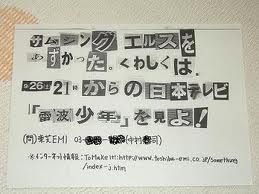 サムシング エルスを
あずかった。くわしくは、
9月26日21時からの日本テレビ
『電波少年』を見よ!
(問)東芝EMI 03
※インターネット情報:ToMake it!:http://www.toshiba-emi.co.jp/something
/index-j.htm